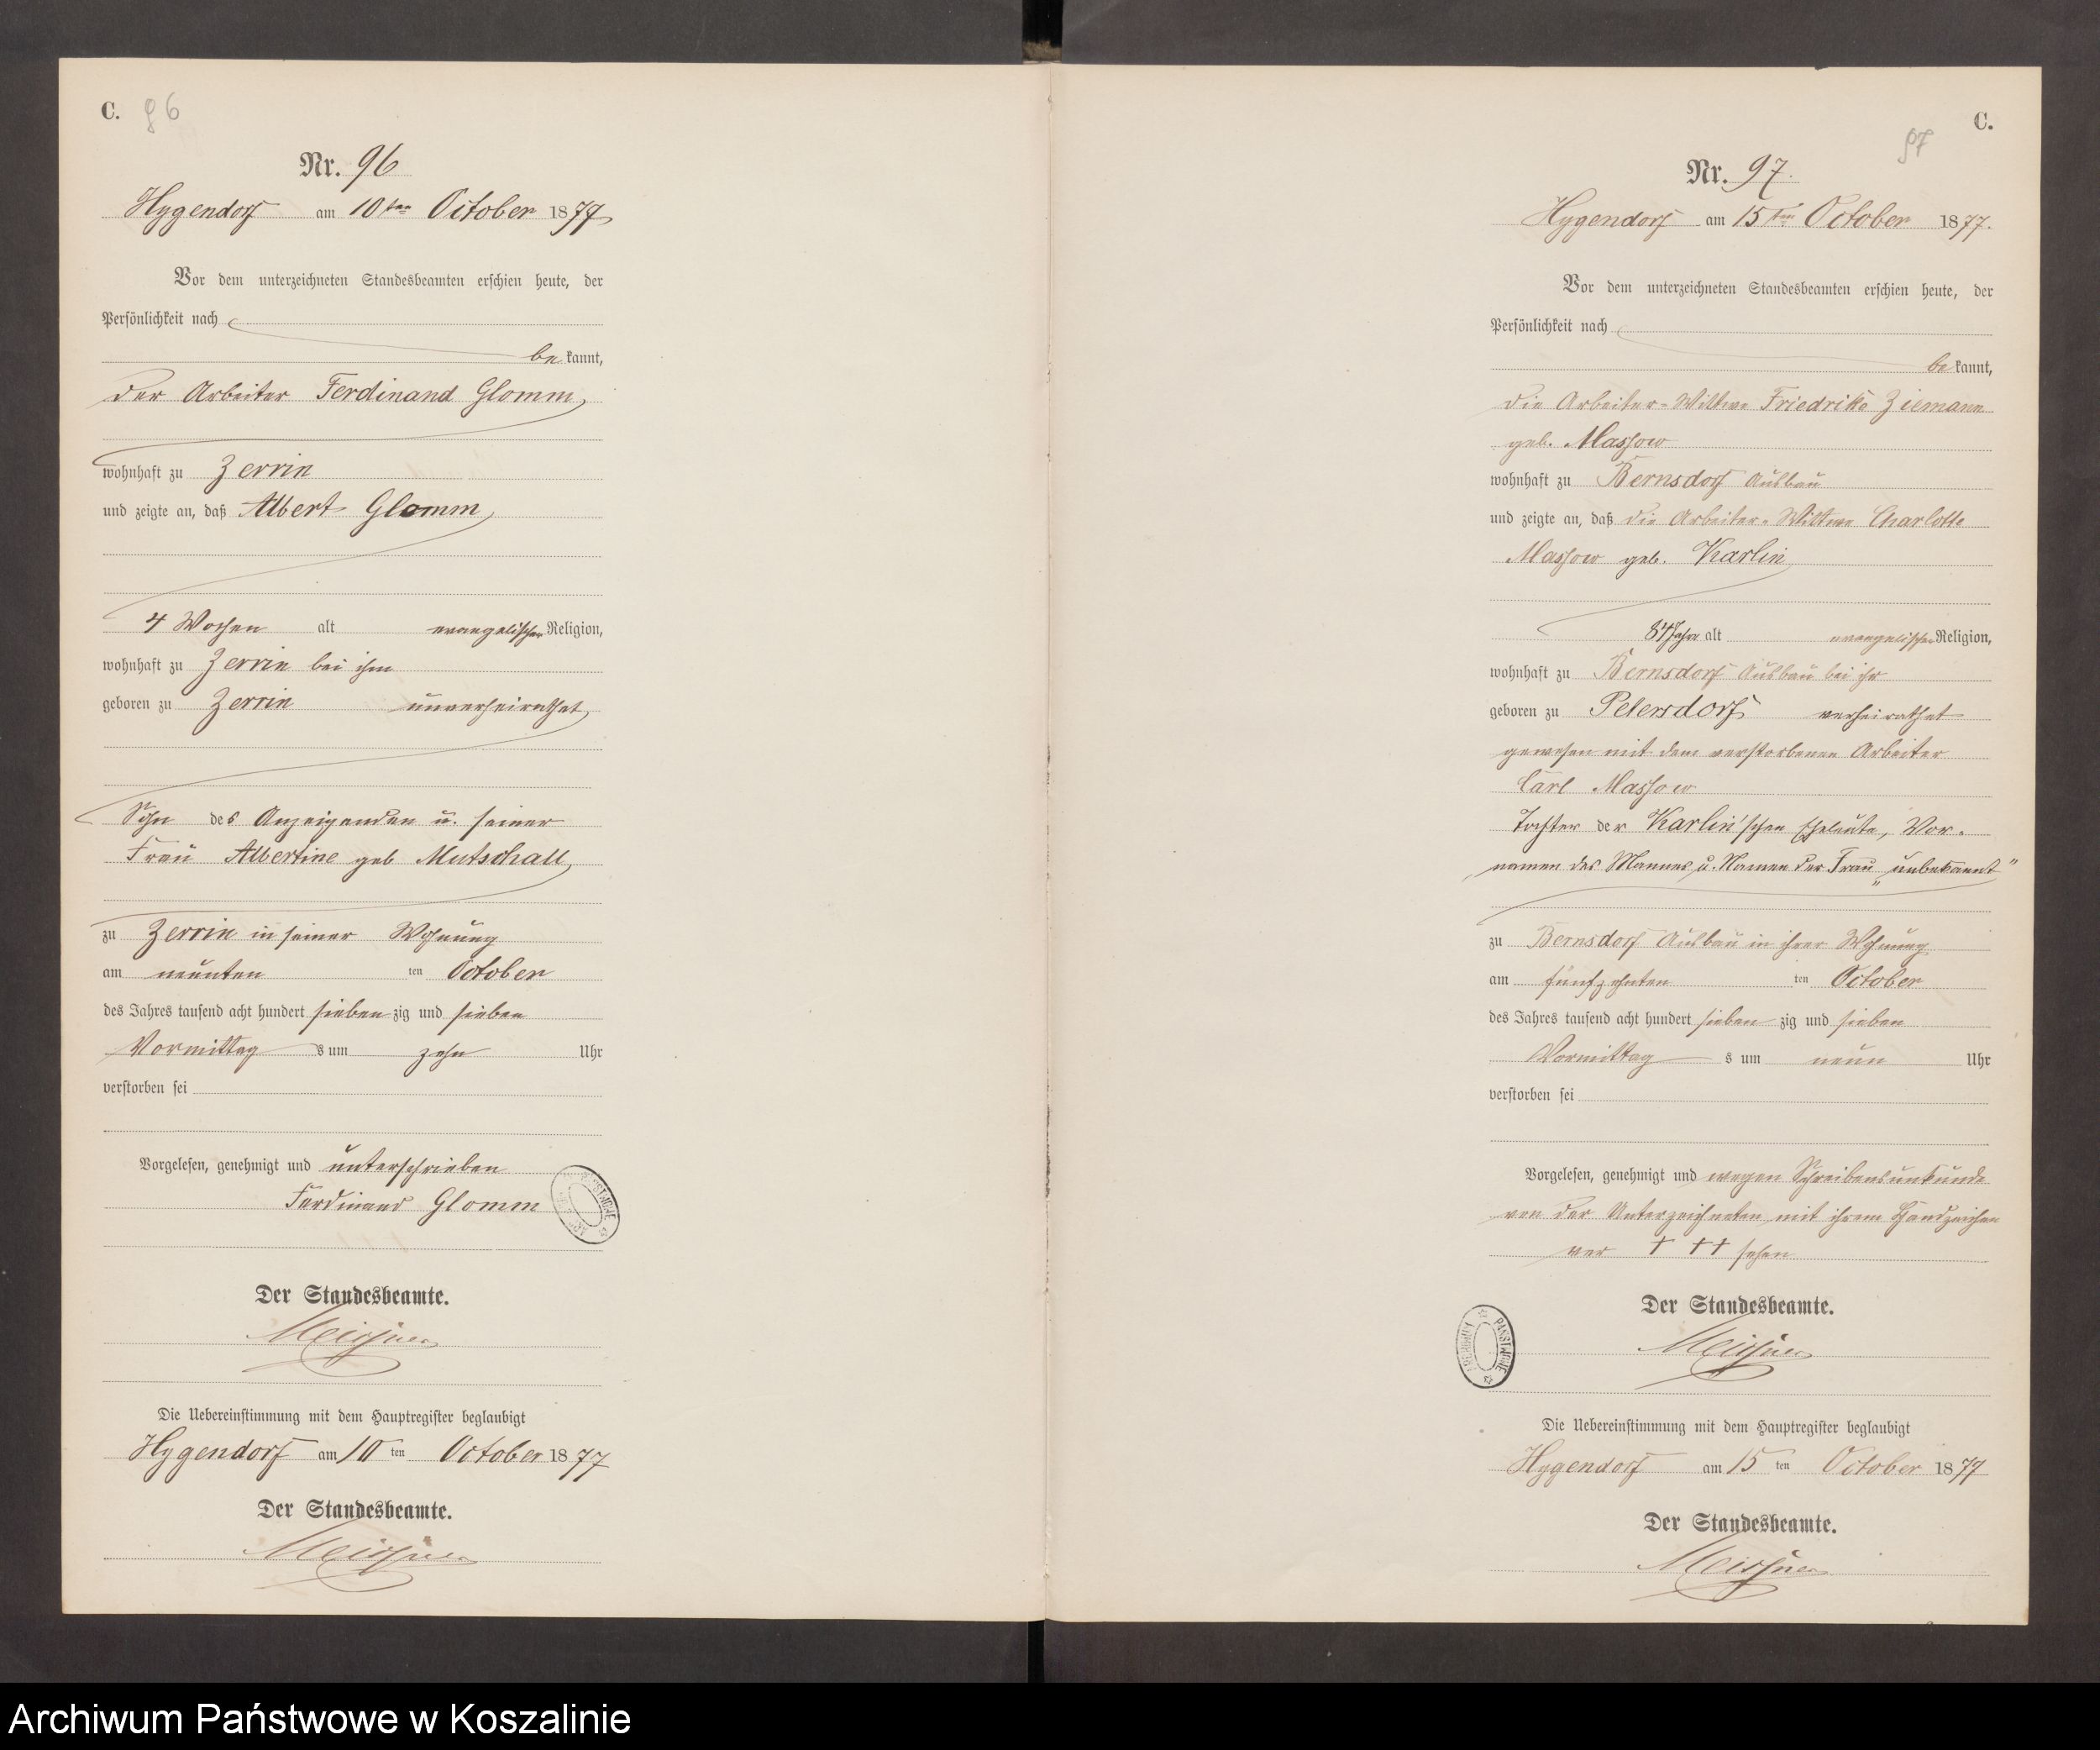 C. 96
Nr. 96
Hygendorf am 10ten October 1877
Vor dem unterzeichneten Standesbeamten erschien heute, der
Persönlichkeit nach
bekannt,
der Arbeiter Ferdinand Glomm,
wohnhaft zu Zerrin
und zeigte an, daß Albert Glomm,
4 Wochen alt evangelischer Religion,
wohnhaft zu Zerrin bei ihm
geboren zu Zerrin unverheirathet,
Sohn des Anzeigenden u. seiner
Frau Albertine geb Mutschall,
zu Zerrin in seiner Wohnung
am neunten ten October
des Jahres tausend acht hundert siebenzig und sieben
Vormittags um zehn Uhr
verstorben sei
Vorgelesen, genehmigt und unterschrieben
Ferdinand Glomm
Der Standesbeamte.
Meissner
Die Uebereinstimmung mit dem Hauptregister beglaubigt
Hygendorf am 10ten October 1877
Der Standesbeamte.
Meissner
C.
97
Nr. 97.
Hygendorf am 15ten October 1877.
Vor dem unterzeichneten Standesbeamten erschien heute, der
Persönlichkeit nach
bekannt,
die Arbeiter-Wittwe Friedrike Ziemann
geb. Massow
wohnhaft zu Bernsdorf Ausbau
und zeigte an, daß die Arbeiter-Wittwe Charlotte
Massow geb. Karlin
84 Jahr alt evangelischer Religion,
wohnhaft zu Bernsdorf Ausbau bei ihr
geboren zu Petersdorf verheirathet
gewesen mit dem verstorbenen Arbeiter
Carl Massow
Tochter der Karlin'schen Eheleute, Vor-
namen des Mannes u. Namen der Frau „unbekannt"
zu Bernsdorf Ausbau in ihrer Wohnung
am fünfzehnten ten October
des Jahres tausend acht hundert siebenzig und sieben
Vormittags um neun Uhr
verstorben sei
Vorgelesen, genehmigt und wegen Schreibensunkunde
von der Unterzeichneten mit ihrem Handzeichen
ver + + + sehen
Der Standesbeamte.
Meissner
ARCHIWUM PAŃSTWOWE
Die Uebereinstimmung mit dem Hauptregister beglaubigt
Hygendorf am 15ten October 1877
Der Standesbeamte.
Meissner
Archiwum Państwowe w Koszalinie